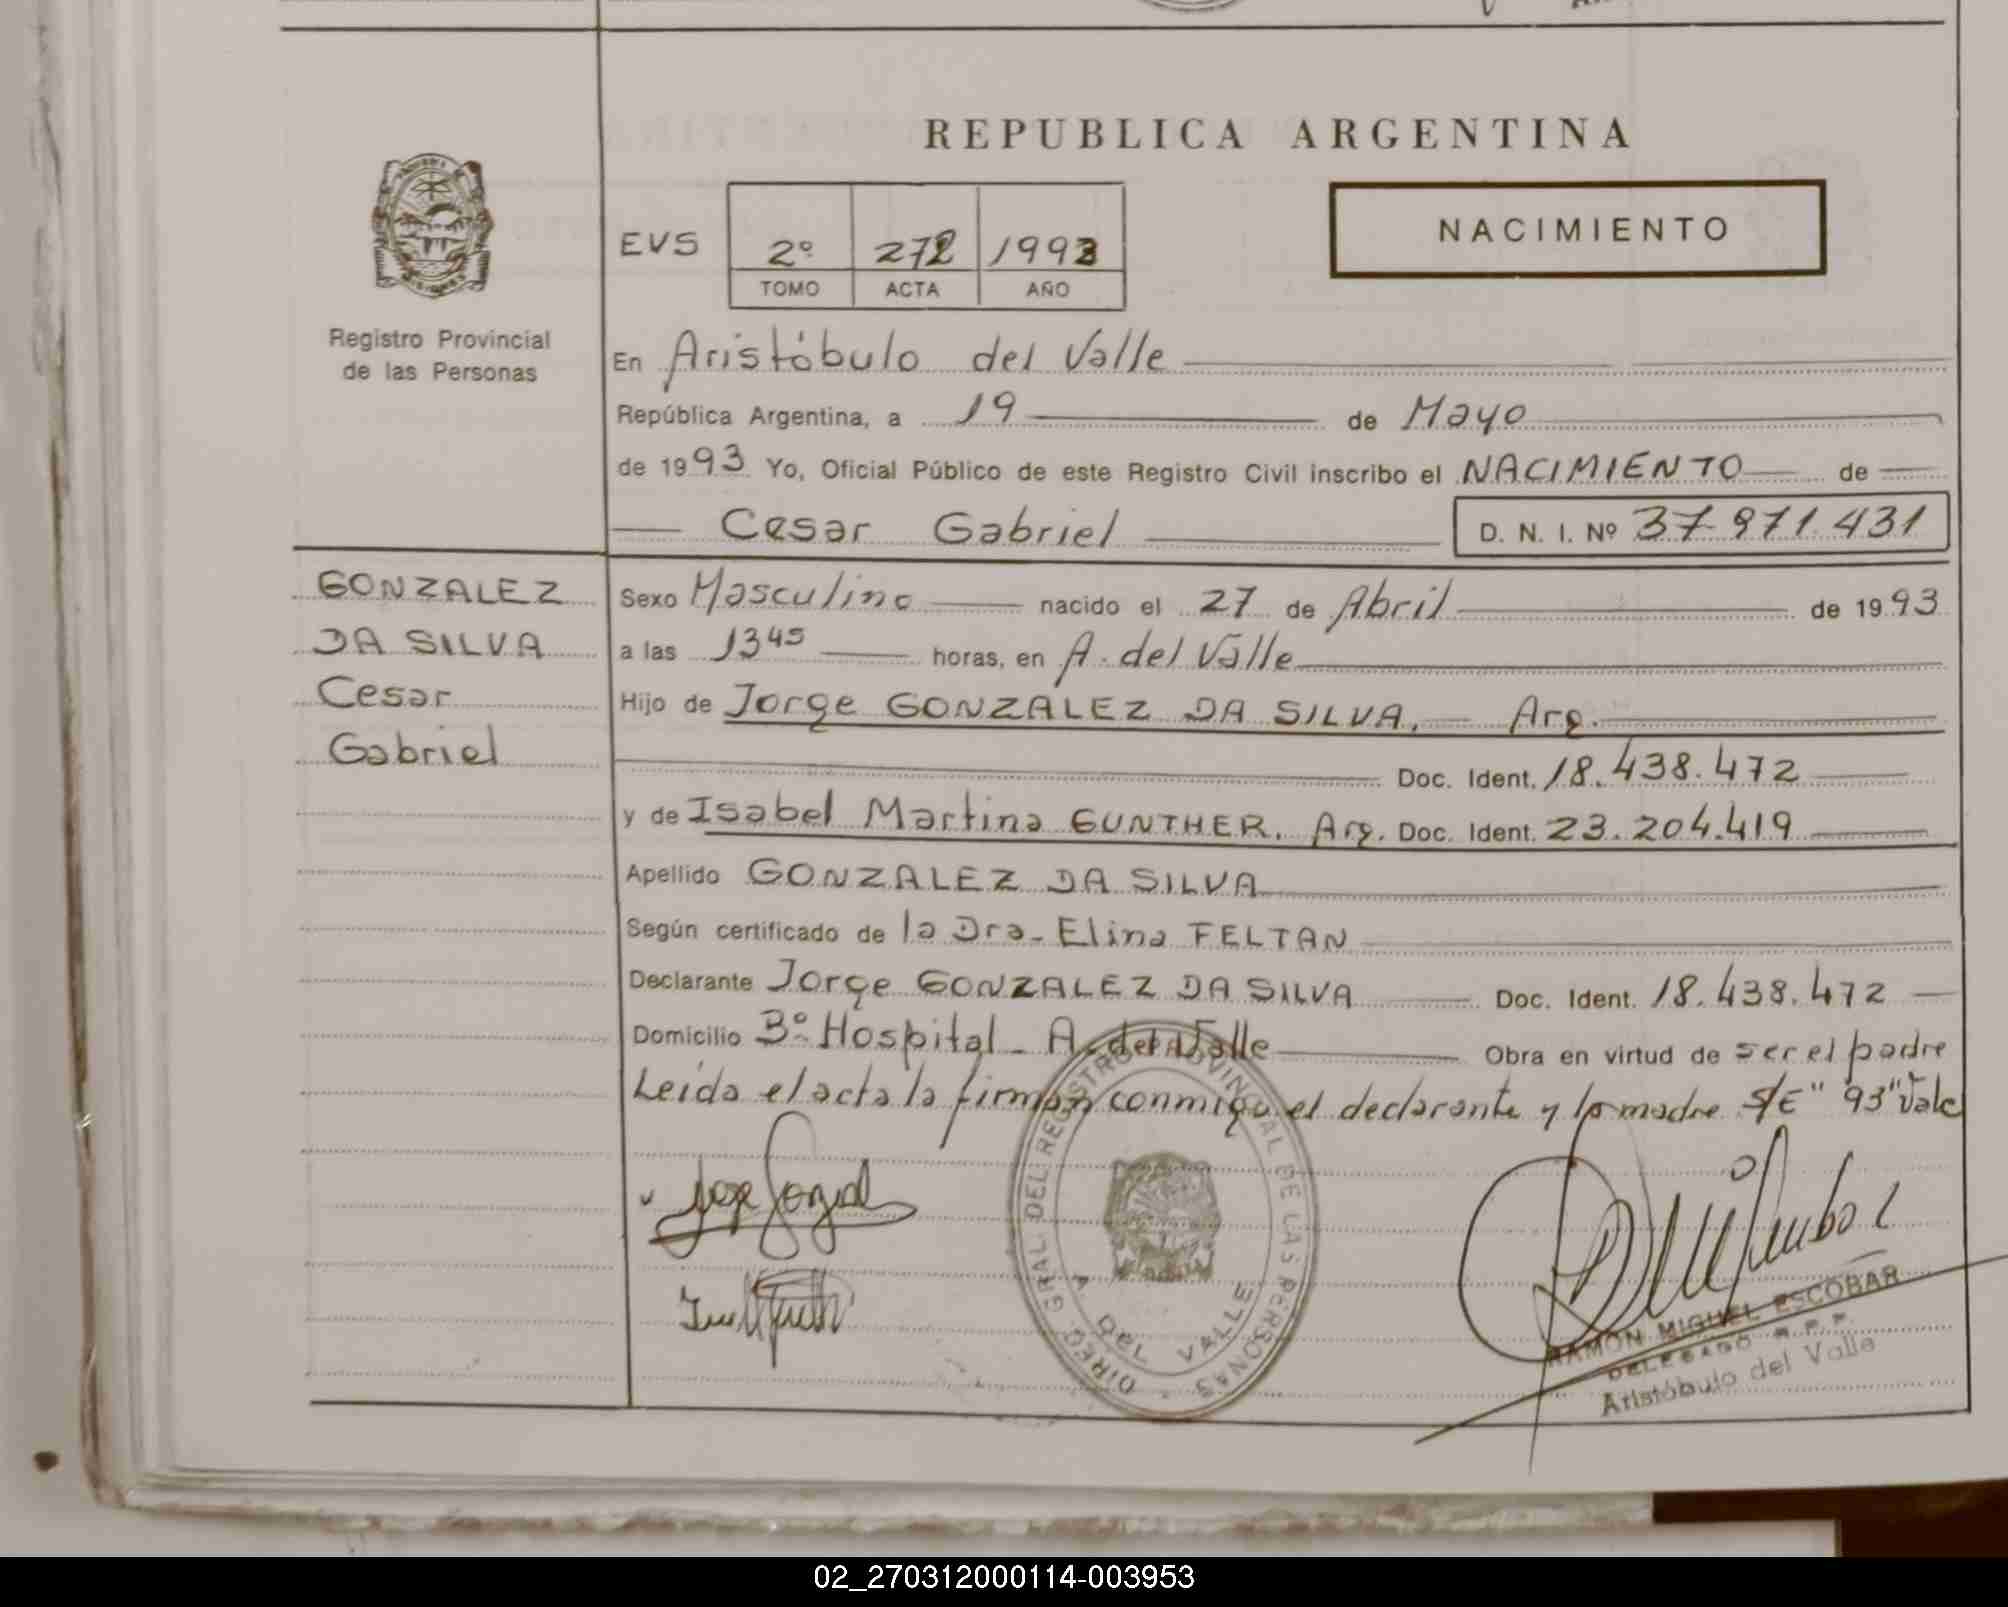 REPUBLICA ARGENTINA
NACIMIENTO
EVS 2º 272 1993
TOMO ACTA AÑO
Registro Provincial
de las Personas
En Aristóbulo del Valle
República Argentina, a 19 de Mayo
de 1993 Yo, Oficial Público de este Registro Civil inscribo el NACIMIENTO de
Cesar Gabriel D. N. I. Nº 37.971.431
GONZALEZ
DA SILVA
Cesar
Gabriel
Sexo Masculino nacido el 27 de Abril de 1993
a las 13 45 horas, en A. del Valle
Hijo de Jorge GONZALEZ DA SILVA. Arg.
Doc. Ident. 18.438.472
y de Isabel Martina GUNTHER. Arg. Doc. Ident. 23.204.419
Apellido GONZALEZ DA SILVA
Según certificado de la Dra. Elina FELTAN
Declarante Jorge GONZALEZ DA SILVA Doc. Ident. 18.438.472
Domicilio Bº Hospital - A. del Valle Obra en virtud de ser el padre
Leida el acta la firman conmigo el declarante y la madre S/E "93" Vale
DIREC. GRAL. DEL REGISTRO PROVINCIAL DE LAS PERSONAS
A. DEL VALLE
RAMON MIGUEL ESCOBAR
DELEGADO R.P.P.
Aristóbulo del Valle
02_270312000114-003953